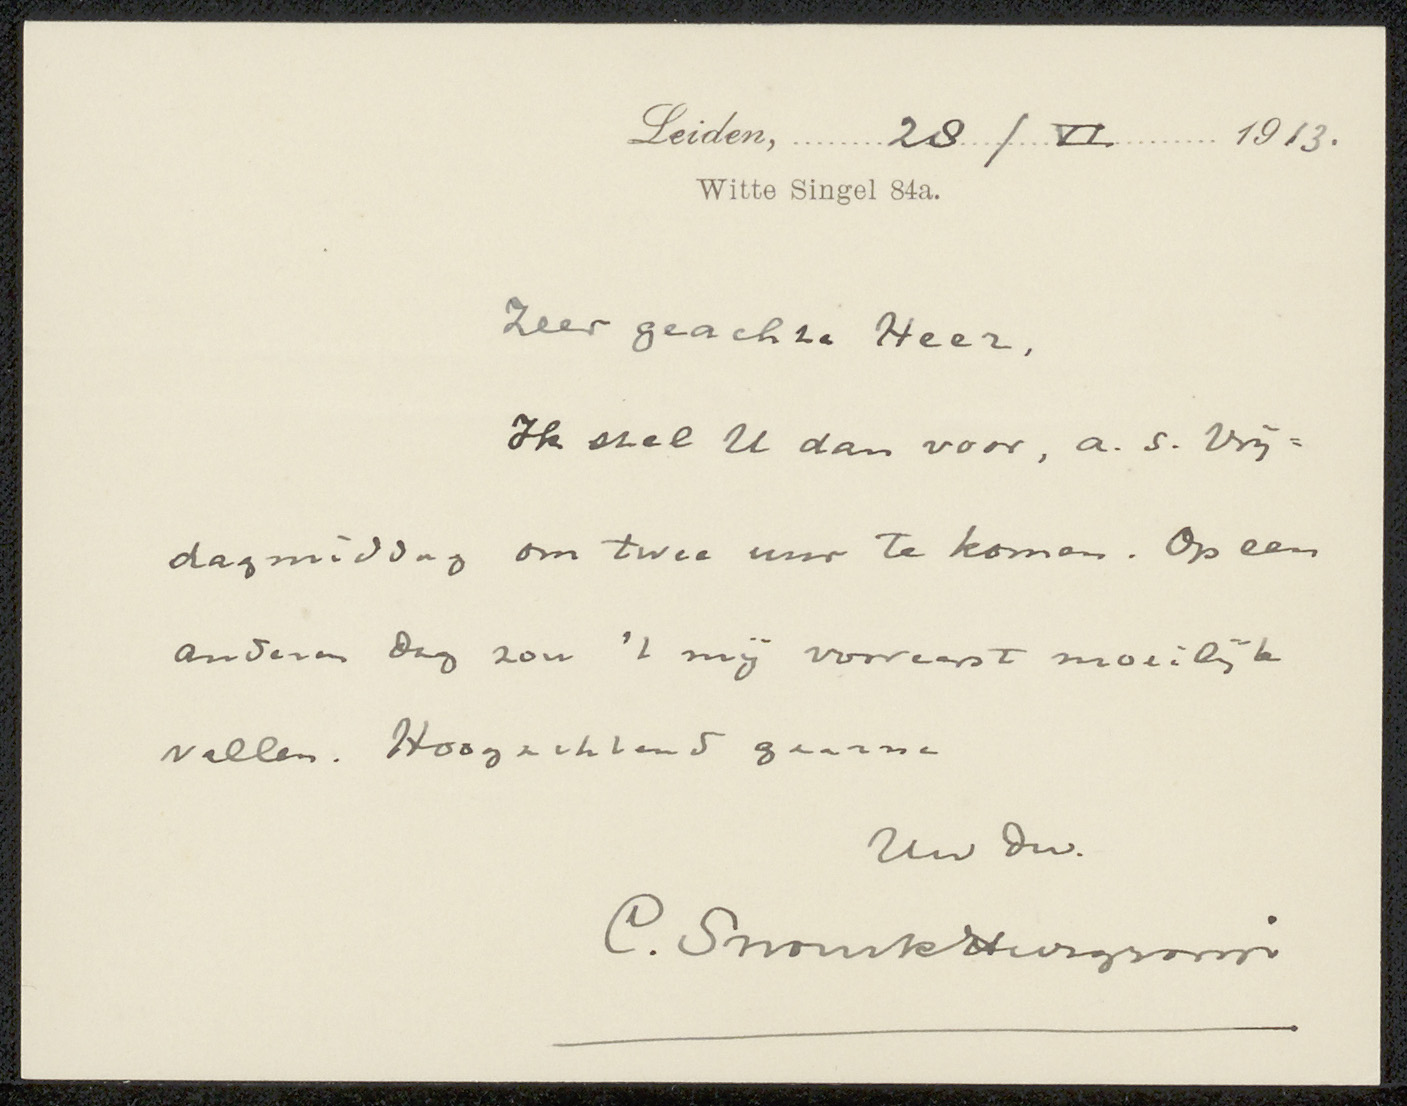 Leiden, 28 / VI 1913.
Witte Singel 84a.
Zeer geachte Heer,
Ik stel U dan voor, a. s. Vrij=
dagmiddag om twee uur te komen. Op een
anderen dag zou 't mij vooreerst moeilijk
vallen. Hoogachtend gaarne
Uw Dw.
C. Snouck Hurgronje